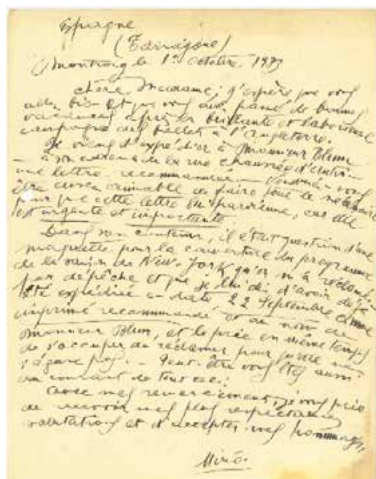 Espagne
(Tarragone)
Montroig le 1er octobre, 1933
chère Madame; j'espère que vous
allez bien et que vous avez passé de bonnes
vacances après la brillante et laborieuse
campagne des ballets à l'Angleterre.
Je viens d'expédier à Monsieur Blum
à son adresse de la rue chaussée d'Antin
une lettre recommandée vous
être aussi aimable de faire tout le nécessaire
pour que cette lettre lui parvienne, car elle
est urgente et importante.
Dans son contenu, il était question d'une
maquette pour la couverture du programme
de la saison de New-York qu'on m'a réclamé
par dépêche et que je lui dis d'avoir déjà
été expédiée en date 22 Septembre comme
imprimé recommandé et au nom de
Monsieur Blum, et le prie en même temps
de s'occuper de réclamer pour qu'elle ne
s'égare pas. Peut-être vous êtes aussi
au courant de tout ceci.
Avec mes remerciements, je vous prie
de recevoir mes plus respectueuses
salutations et d'accepter mes hommages,
Miró.